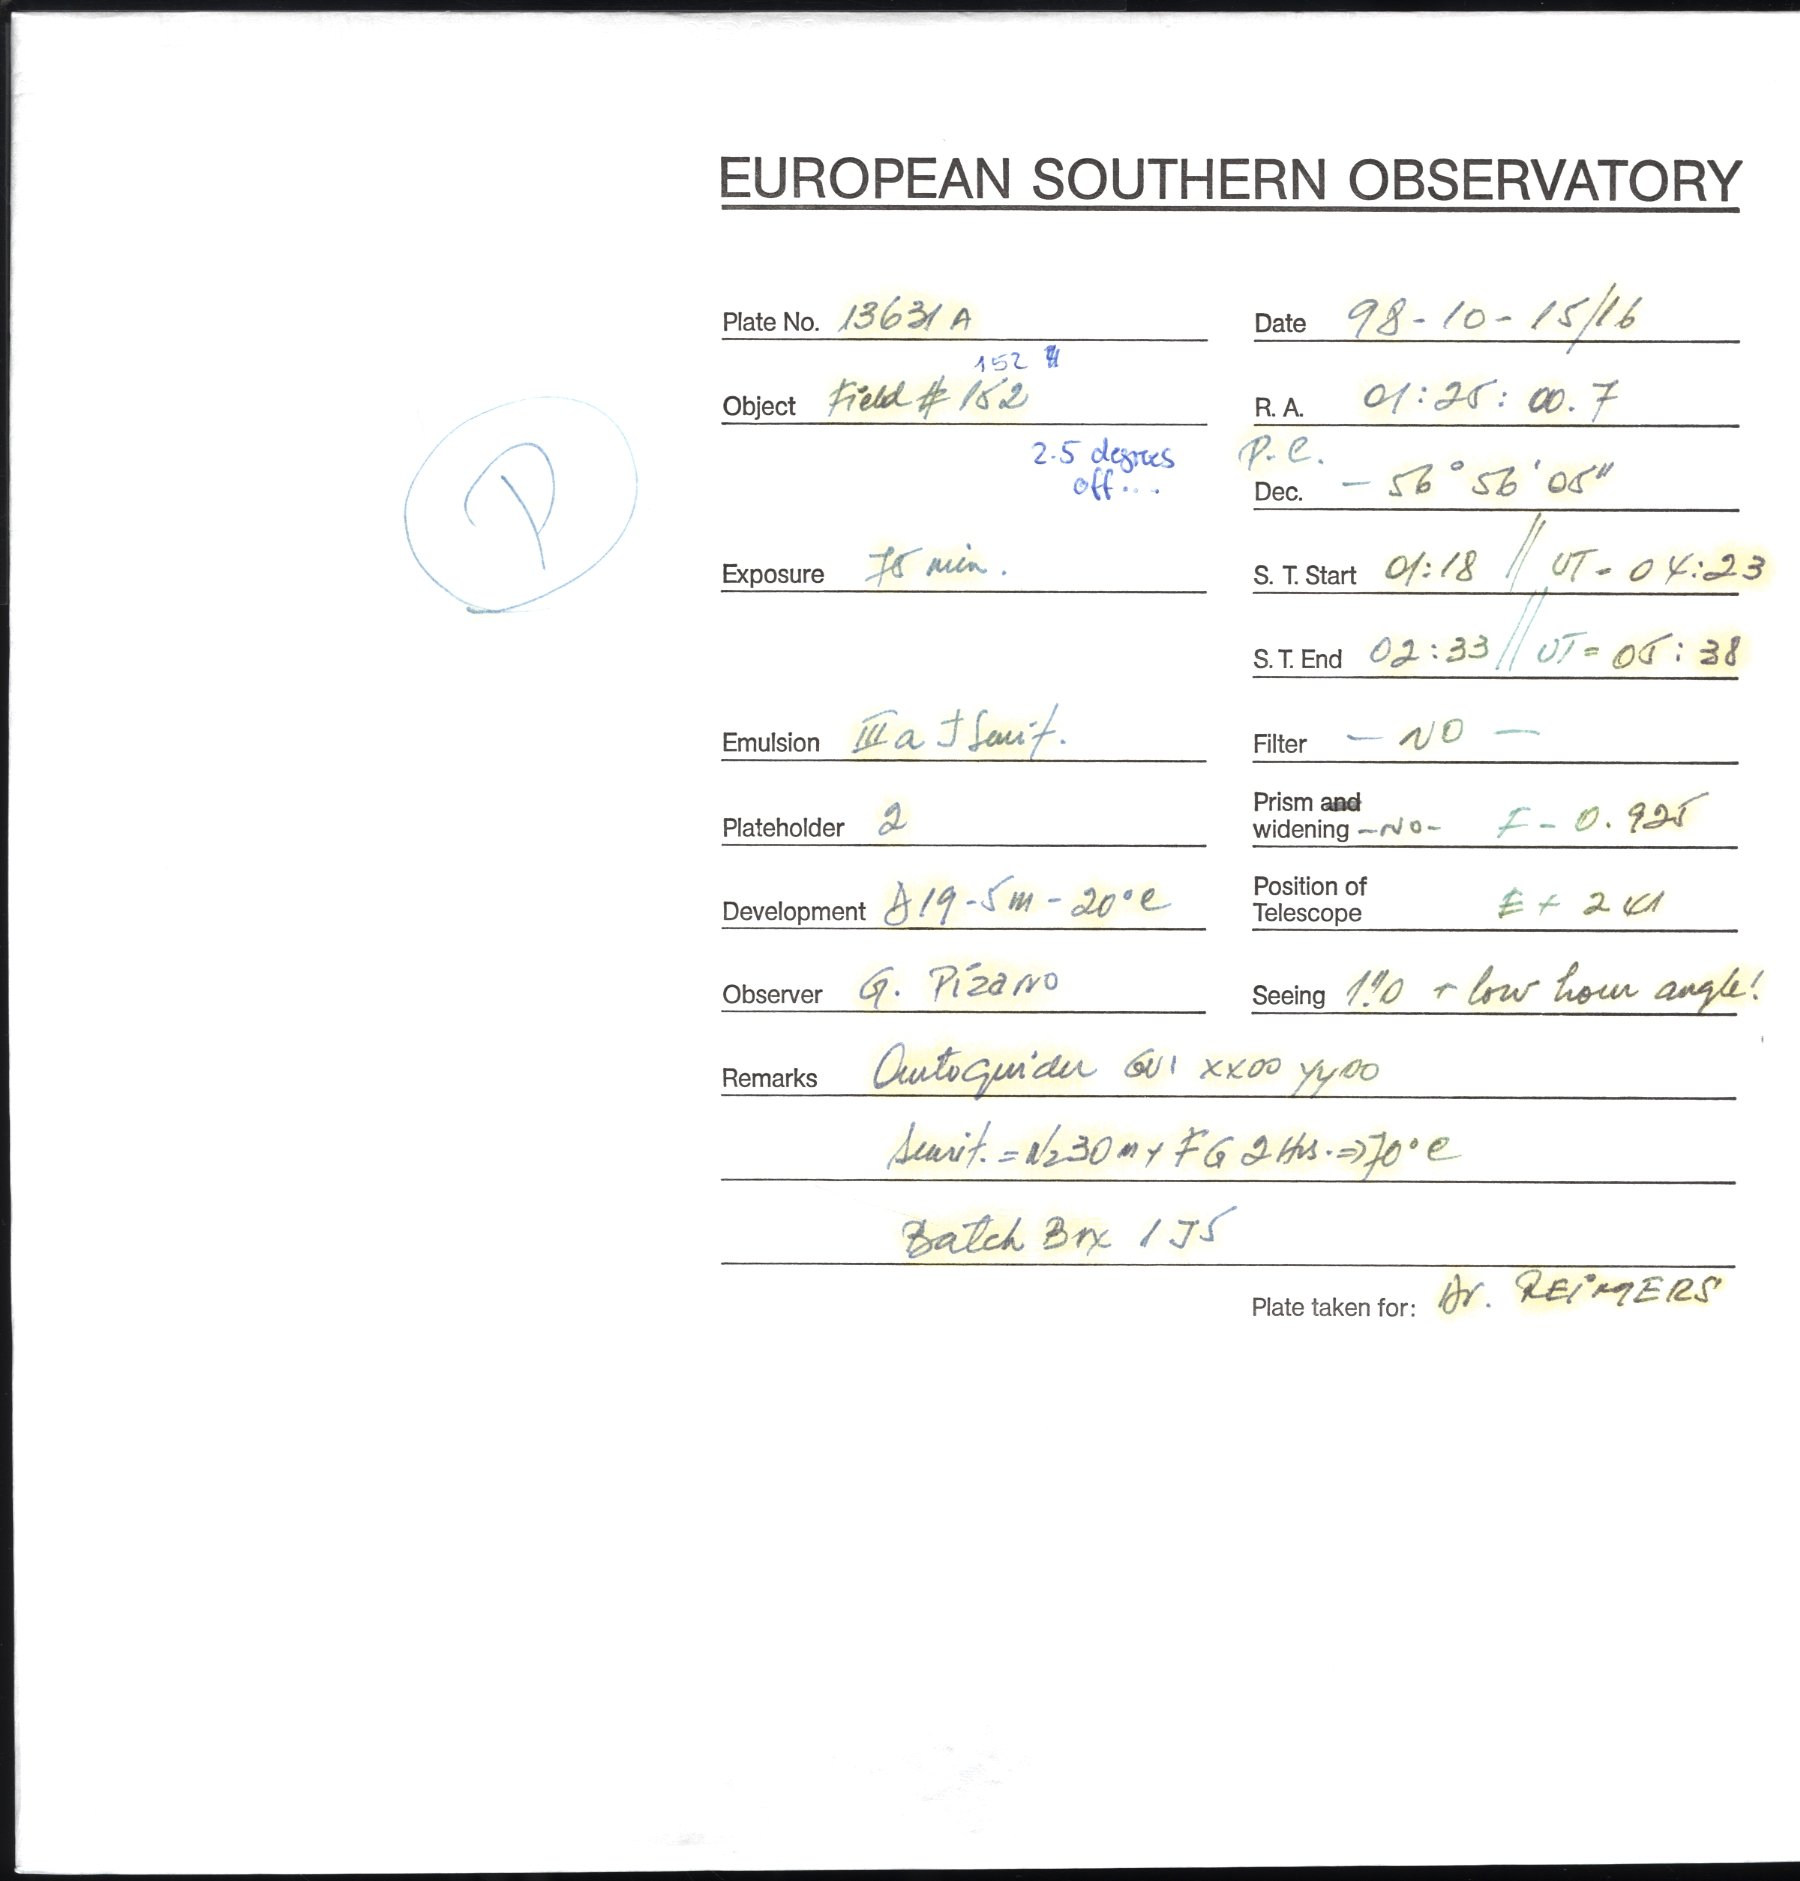 EUROPEAN SOUTHERN OBSERVATORY
Plate No. 13631 A
Date 98-10-15/16
152
Object Field # 152
R. A. 01:25:00.7
2.5 degrees
off...
P.C.
Dec. - 56° 56' 05"
P
Exposure 75 min.
S. T. Start 01:18 // UT- 04:23
S. T. End 02:33 // UT= 05:38
Emulsion III a J Sensit.
Filter - NO -
Plateholder 2
Prism and
widening -NO- F- 0.925
Development D19-5m-20°C
Position of
Telescope E+ 2
Observer G. Pizarro
Seeing 1"0 + low hour angle!
Remarks Autoguider GU1 XX00 YY00
Sensit. = N2 30m + FG 2 Hrs. => 70°C
Batch Box 1J5
Plate taken for: Dr. REIMERS